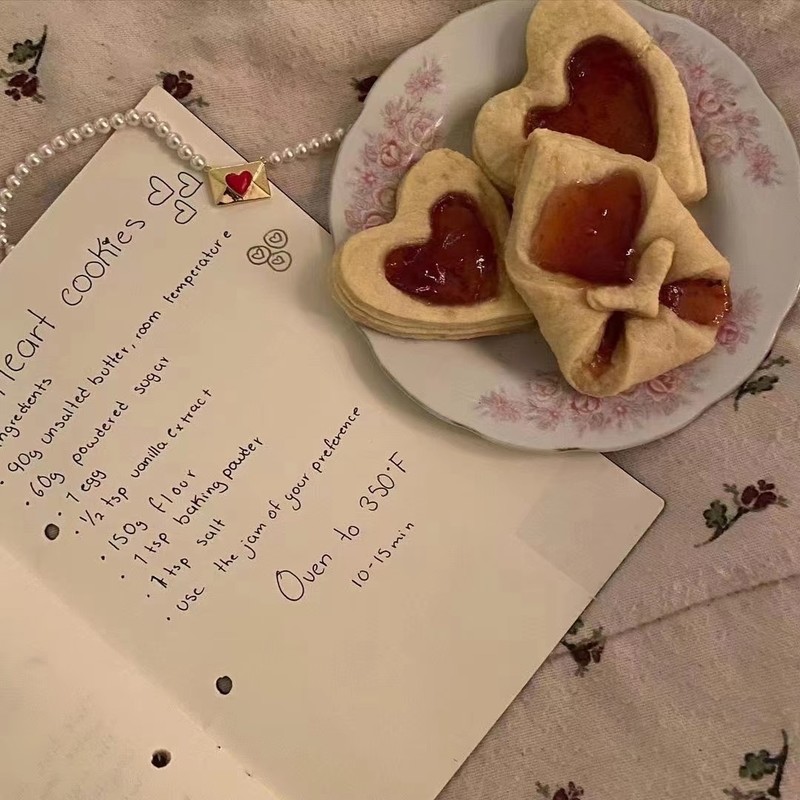 Heart cookies
Ingredients
• 90g unsalted butter, room temperature
• 60g powdered sugar
• 1 egg
• 1/2 tsp vanilla extract
• 150g flour
• 1 tsp baking powder
• 1 tsp salt
• use the jam of your preference
Oven to 350°F
10-15 min